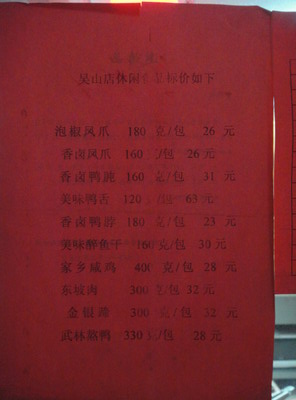 吴山店休闲 标价如下
泡椒凤爪 180 克/包 26 元
香卤凤爪 160 克/包 26 元
香卤鸭肫 160 克/包 31 元
美味鸭舌 120 克/包 63 元
香卤鸭脖 180 克/包 23 元
美味醉鱼干 160 克/包 30 元
家乡咸鸡 400 克/包 28 元
东坡肉 300 克/包 32 元
金银蹄 300 克/包 32 元
武林熬鸭 330 克/包 28 元